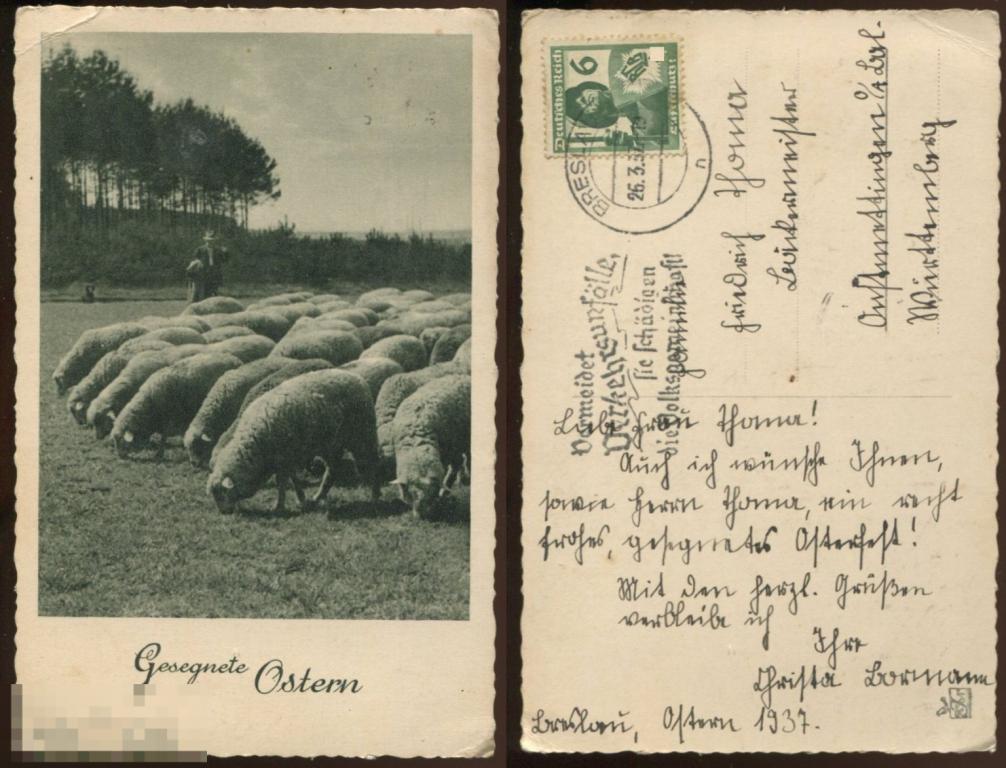 Gesegnete
Ostern
Deutsches Reich
6
Luftschutz
BRESLAU
26.3.37
n
Vermeidet
Verkehrsunfälle,
sie schädigen
die Volksgemeinschaft!
Friedrich Thoma
Bäckermeister
Onstmettingen O/A Bal.
Württemberg
Liebe Frau Thoma!
Auch ich wünsche Ihnen,
sowie Herrn Thoma, ein recht
frohes, gesegnetes Osterfest!
Mit den herzl. Grüßen
verbleibe ich
Ihre
Christa Bormann
Breslau, Ostern 1937.